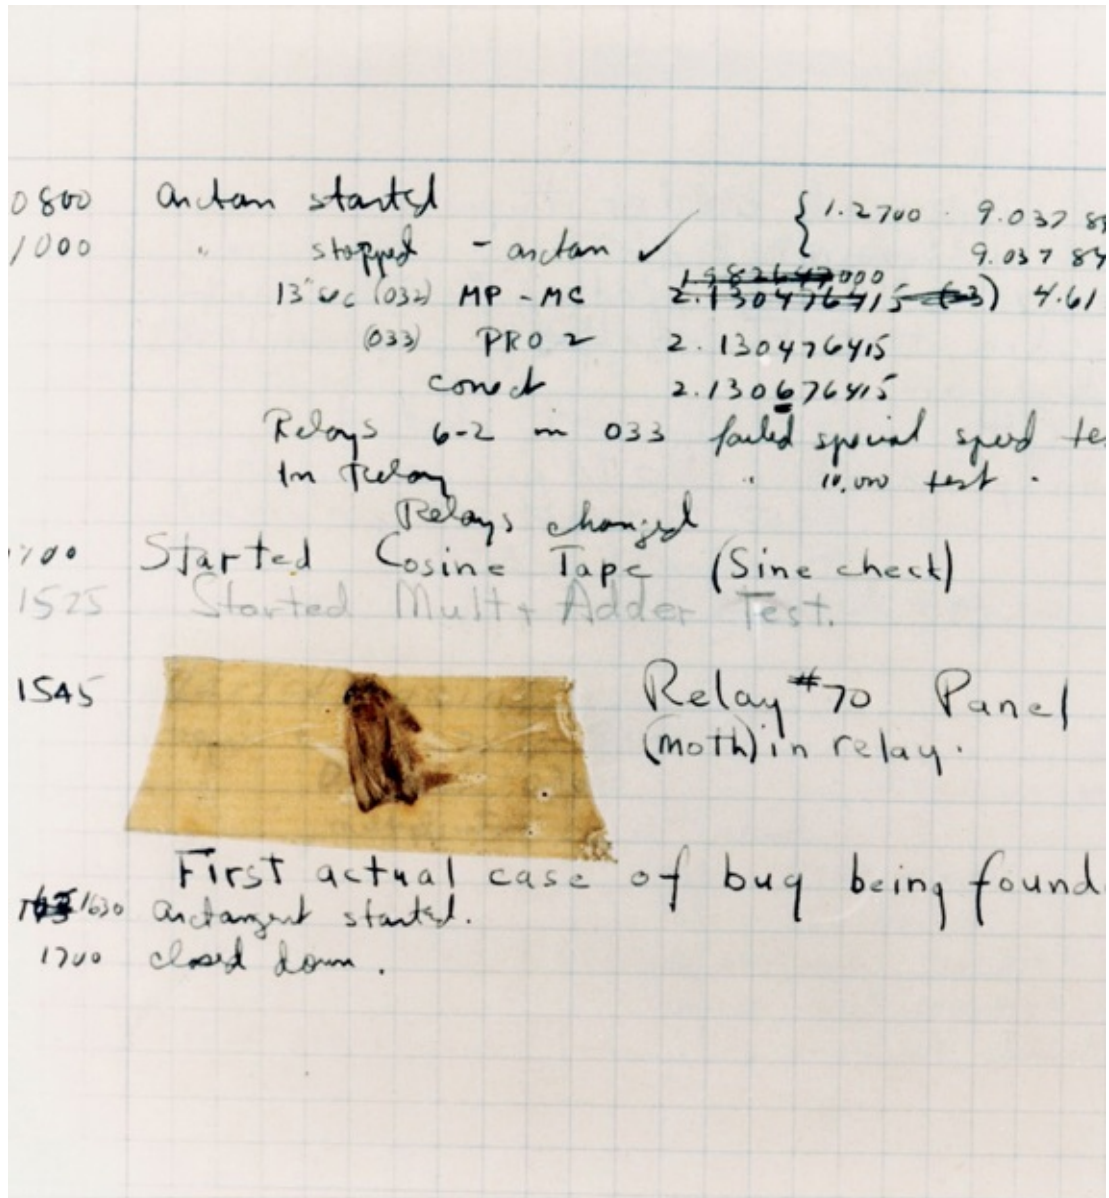 0800 arctan started { 1.2700 9.037 84
1000 " stopped - arctan ✓ 9.037 84
13" sec (032) MP - MC 2.130476415 (-3) 4.61
(033) PRO 2 2.130476415
correct 2.130676415
Relays 6-2 in 033 failed special speed te
In Relay " 10,000 test .
Relays changed
1700 Started Cosine Tape (Sine check)
1525 Started Mult + Adder Test.
1545 Relay #70 Panel
(moth) in relay.
First actual case of bug being found
1630 arctangent started.
1700 closed down.